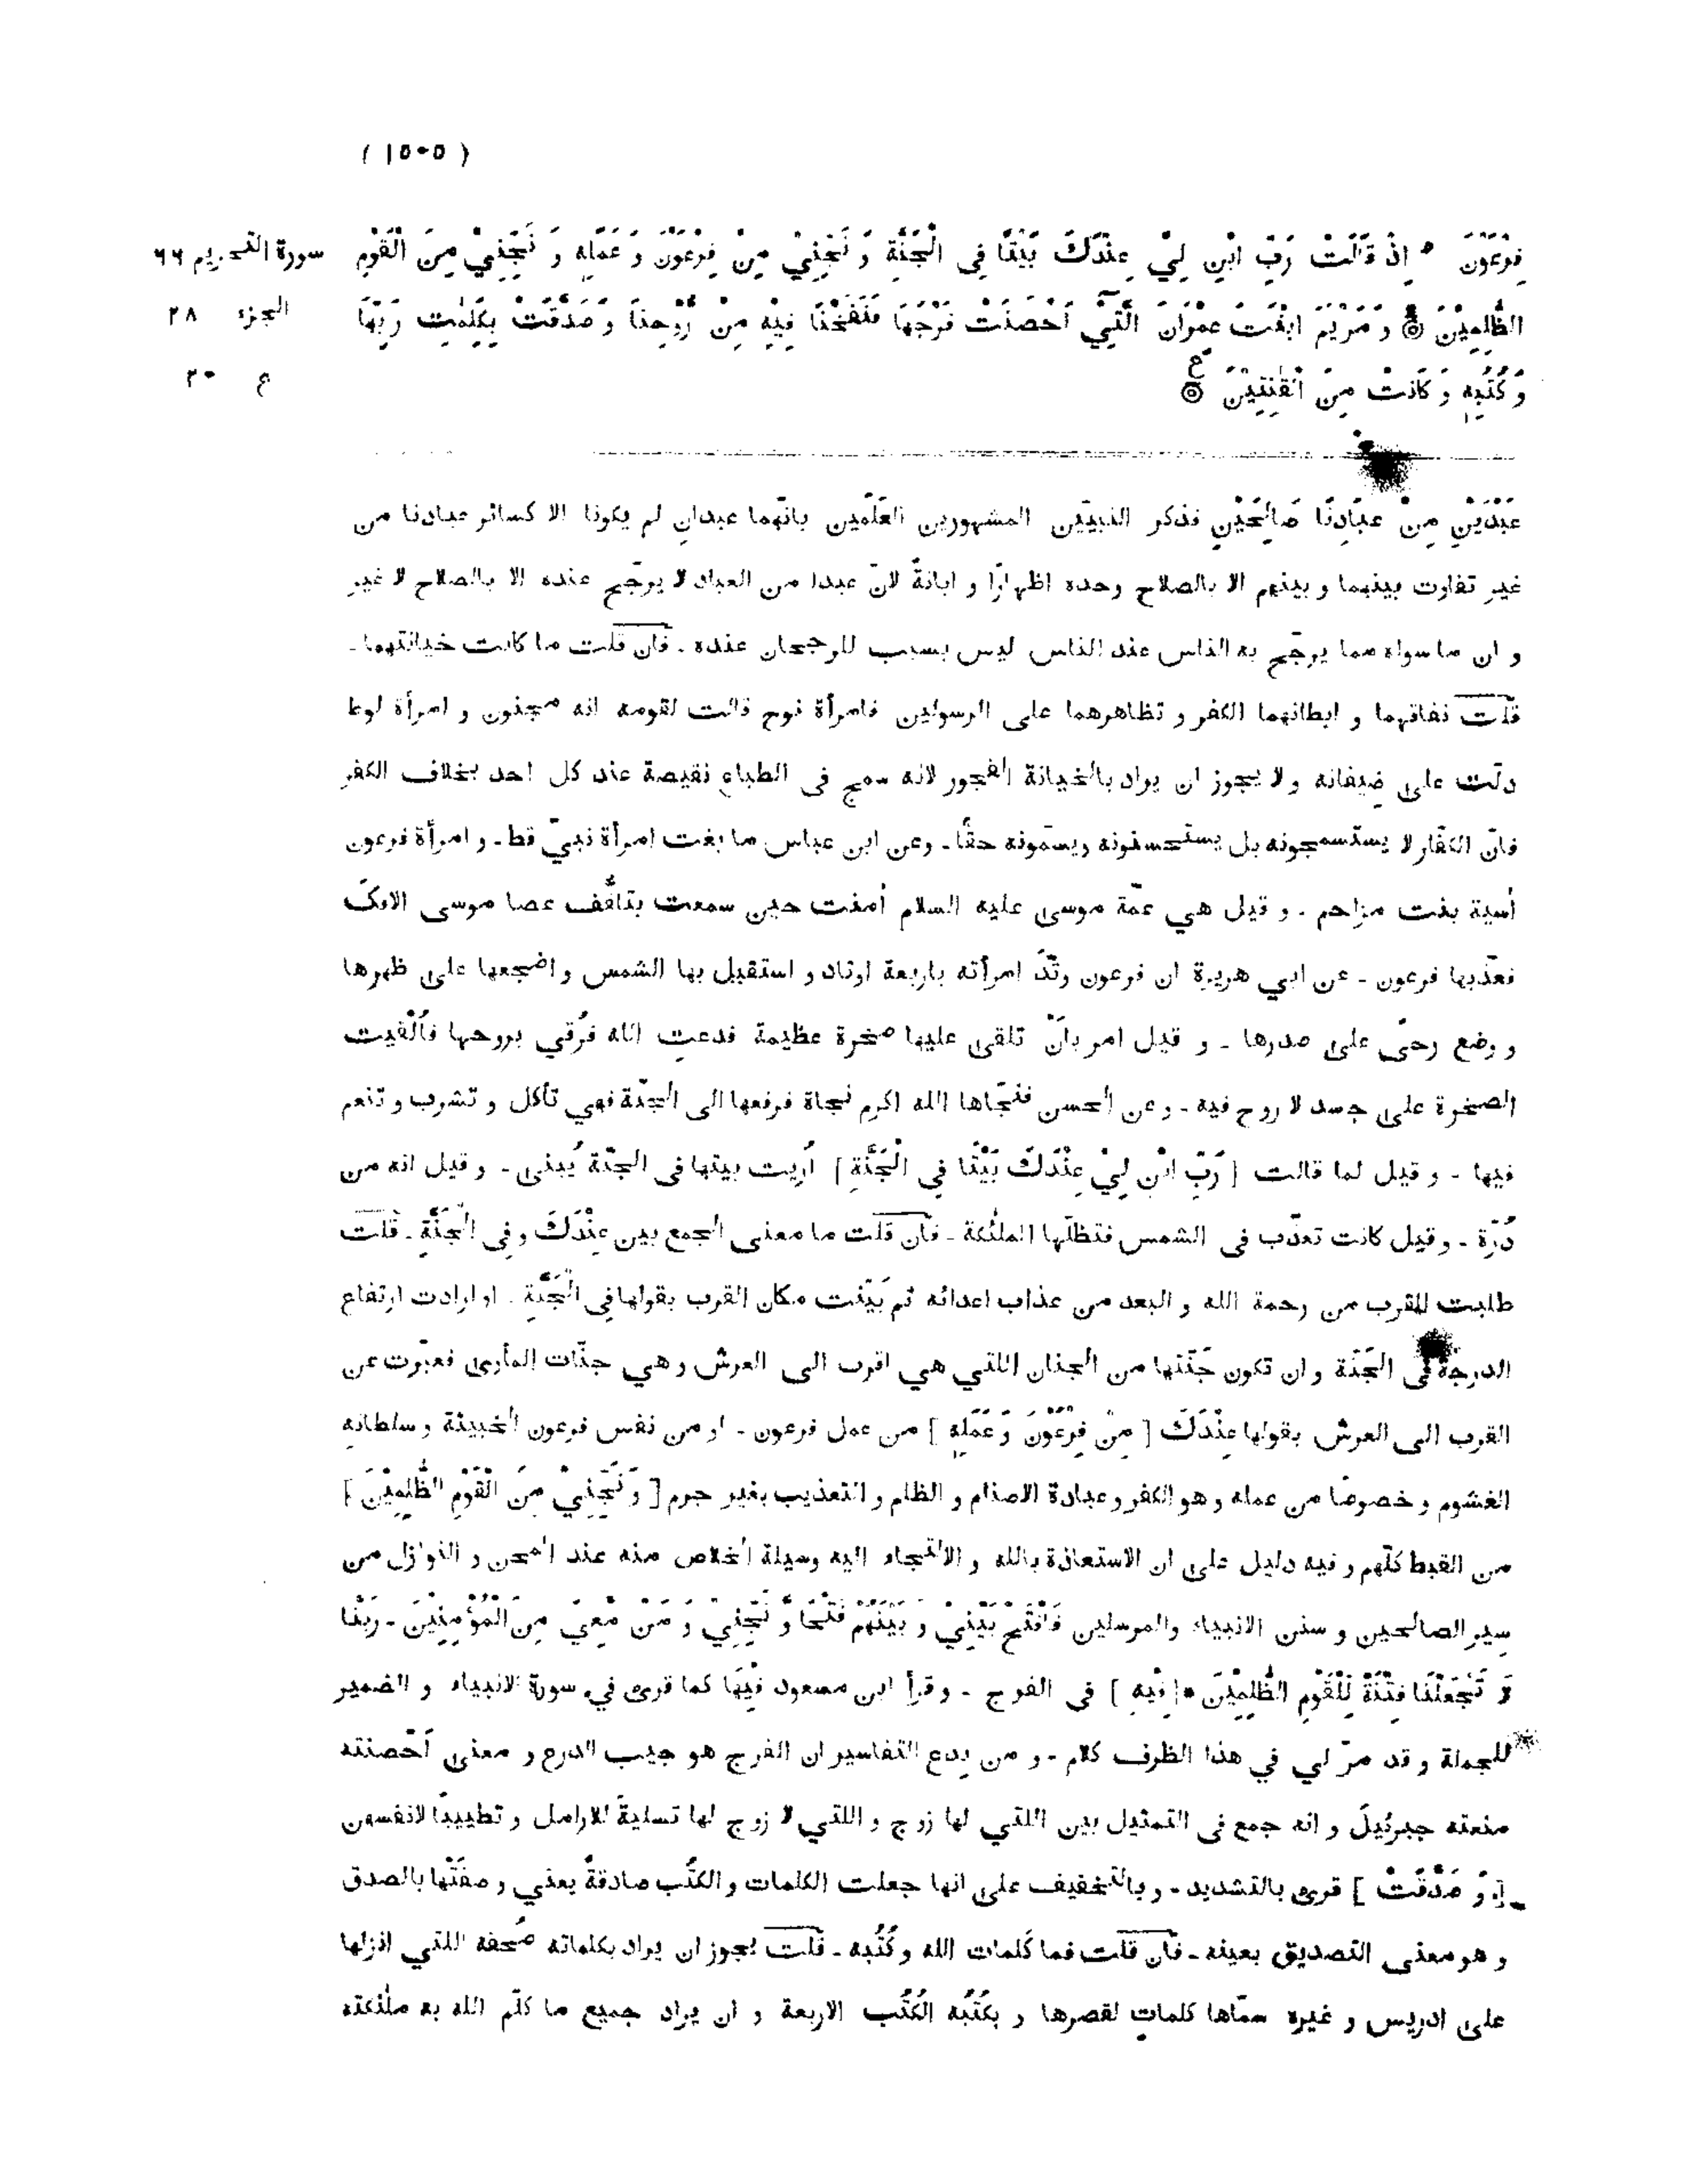 ( ١٥٠٥ )
فِرْعَوْنَ * اِذْ قَالَتْ رَبِّ ابْنِ لِيْ عِنْدَكَ بَيْتًا فِى الْجَنَّةِ وَ نَجِّنِيْ مِنْ فِرْعَوْنَ وَ عَمَلِهٖ وَ نَجِّنِيْ مِنَ الْقَوْمِ
سورة التحريم ٦٦
الظّٰلِمِيْنَ ۞ وَ مَرْيَمَ ابْنَتَ عِمْرٰنَ الَّتِيْٓ اَحْصَنَتْ فَرْجَهَا فَنَفَخْنَا فِيْهِ مِنْ رُّوْحِنَا وَ صَدَّقَتْ بِكَلِمٰتِ رَبِّهَا
الجزء ٢٨
وَ كُتُبِهٖ وَ كَانَتْ مِنَ الْقٰنِتِيْنَ ۞ ع
ع ٢٠
عَبْدَيْنِ مِنْ عِبَادِنَا صَالِحَيْنِ فذكر النبيّين المشهورين العَلَمين بانّهما عبدانِ لم يكونا الا كسائر عبادنا من
غير تفاوت بينهما و بينهم الا بالصلاح وحده اظهارًا و ابانةً لانّ عبدا من العباد لا يرجّح عنده الا بالصلاح لا غير
و ان ما سواه مما يرجّح به الناس عند الناس ليس بسبب للرجحان عنده ـ فان قلت ما كانت خيانتهما ـ
قلت نفاقهما و ابطانهما الكفر و تظاهرهما على الرسولين فامرأة نوح قالت لقومه انه مجنون و امرأة لوط
دلّت على ضِيفانه ولا يجوز ان يراد بالخيانة الفجور لانه سمج فى الطباع نقيصة عند كل احد بخلاف الكفر
فانّ الكفّار لا يستسمجونه بل يستحسنونه ويسمّونه حقًّا ـ وعن ابن عباس ما بغت امرأة نبيّ قط ـ و امرأة فرعون
اٰسية بنت مزاحم ـ و قيل هي عمّة موسى عليه السلام اٰمنت حين سمعت بتلقُّف عصا موسى الافك
فعذّبها فرعون ـ عن ابي هريرة ان فرعون وتّد امرأته باربعة اوتاد و استقبل بها الشمس و اضجعها على ظهرها
و وضع رحىً على صدرها ـ و قيل امر بانْ تلقى عليها صخرة عظيمة فدعتِ الله فرُقي بروحها فأُلْقيت
الصخرة على جسد لا روح فيه ـ وعن الحسن فنجّاها الله اكرم نجاة فرفعها الى الجنّة فهي تأكل و تشرب و تنعم
فيها ـ و قيل لما قالت [ رَبِّ ابْنِ لِيْ عِنْدَكَ بَيْتًا فِى الْجَنَّةِ ] اُريت بيتها فى الجنّة يُبنى ـ و قيل انه من
دُرّة ـ و قيل كانت تعذّب فى الشمس فتظلّها الملٰئكة ـ فان قلت ما معنى الجمع بين عِنْدَكَ و فِى الْجَنَّةِ ـ قلت
طلبت القرب من رحمة الله و البعد من عذاب اعدائه ثم بَيّنت مكان القرب بقولها فِى الْجَنَّةِ ـ او ارادت ارتفاع
الدرجة فى الجَنّة و ان تكون جَنّتها من الجنان اللتي هي اقرب الى العرش وهي جنّات المأوى فعبّرت عن
القرب الى العرش بقولها عِنْدَكَ [ مِنْ فِرْعَوْنَ وَ عَمَلِهٖ ] من عمل فرعون ـ او من نفس فرعون الخبيثة و سلطانه
الغشوم و خصوصًا من عمله و هو الكفر و عبادة الاصنام و الظلم و التعذيب بغير جرم [ وَ نَجِّنِيْ مِنَ الْقَوْمِ الظّٰلِمِيْنَ ]
من القبط كلّهم و فيه دليل على ان الاستعاذة بالله و الالتجاء اليه وسيلة الخلاص منه عند المحن و النوازل من
سِير الصالحين و سنن الانبياء والمرسلين فَافْتَحْ بَيْنِيْ وَ بَيْنَهُمْ فَتْحًا وَّ نَجِّنِيْ وَ مَنْ مَّعِيَ مِنَ الْمُؤْمِنِيْنَ ـ رَبَّنَا
لَا تَجْعَلْنَا فِتْنَةً لِّلْقَوْمِ الظّٰلِمِيْنَ * [ فِيْهِ ] فى الفرج ـ و قرأ ابن مسعود فِيْهَا كما قرى في سورة الانبياء و الضمير
للجملة و قد مرّ لي في هذا الظرف كلام ـ و من بِدع التفاسير ان الفرج هو جيب الدرع و معنى اَحْصنته
منعته جبرئيلَ و انه جمع فى التمثيل بين اللتي لها زوج و اللتي لا زوج لها تسليةً للارامل و تطييبًا لانفسهن
[ وَ صَدَّقَتْ ] قرى بالتشديد ـ و بالتخفيف على انها جعلت الكلمات و الكتُب صادقةً يعني و صفَتْها بالصدق
و هو معنى التصديق بعينه ـ فان قلت فما كَلمات الله و كُتُبه ـ قلت يجوز ان يراد بكلماته صُحفه اللتي انزلها
على ادريس و غيره سمّاها كلماتٍ لقصرها و بكُتُبه الكُتُب الاربعة و ان يراد جميع ما كلّم الله به ملٰئكته